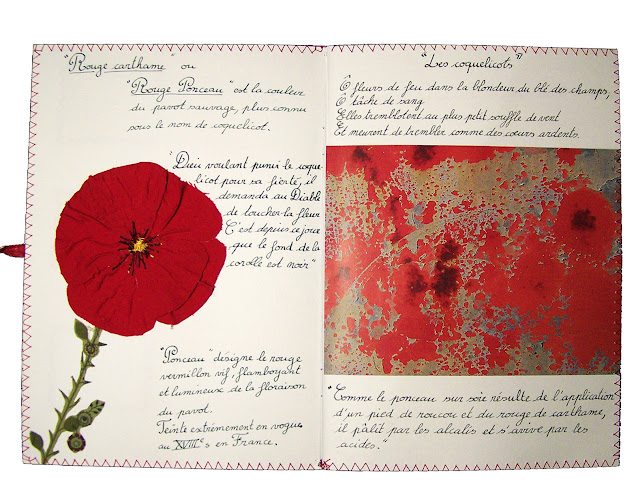 "Rouge carthame" ou
"Rouge Ponceau" est la couleur
du pavot sauvage, plus connu
sous le nom de coquelicot.
"Dieu voulant punir le coque
licot pour sa fierté, il
demanda au Diable
de toucher la fleur
C'est depuis ce jour
que le fond de la
corolle est noir"
"Ponceau" désigne le rouge
vermillon vif, flamboyant
et lumineux de la floraison
du pavot.
Teinte extrèmement en vogue
au XVIIIe s en France.
"Les coquelicots"
Ô fleurs de feu dans la blondeur du blé des champs,
Ô tâche de sang
Elles tremblotent au plus petit souffle de vent
Et meurent de trembler comme des cœurs ardents.
"Comme le ponceau sur soie résulte de l'application
d'un pied de roucou et du rouge de carthame,
il pâlit par les alcalis et s'avive par les
acides."